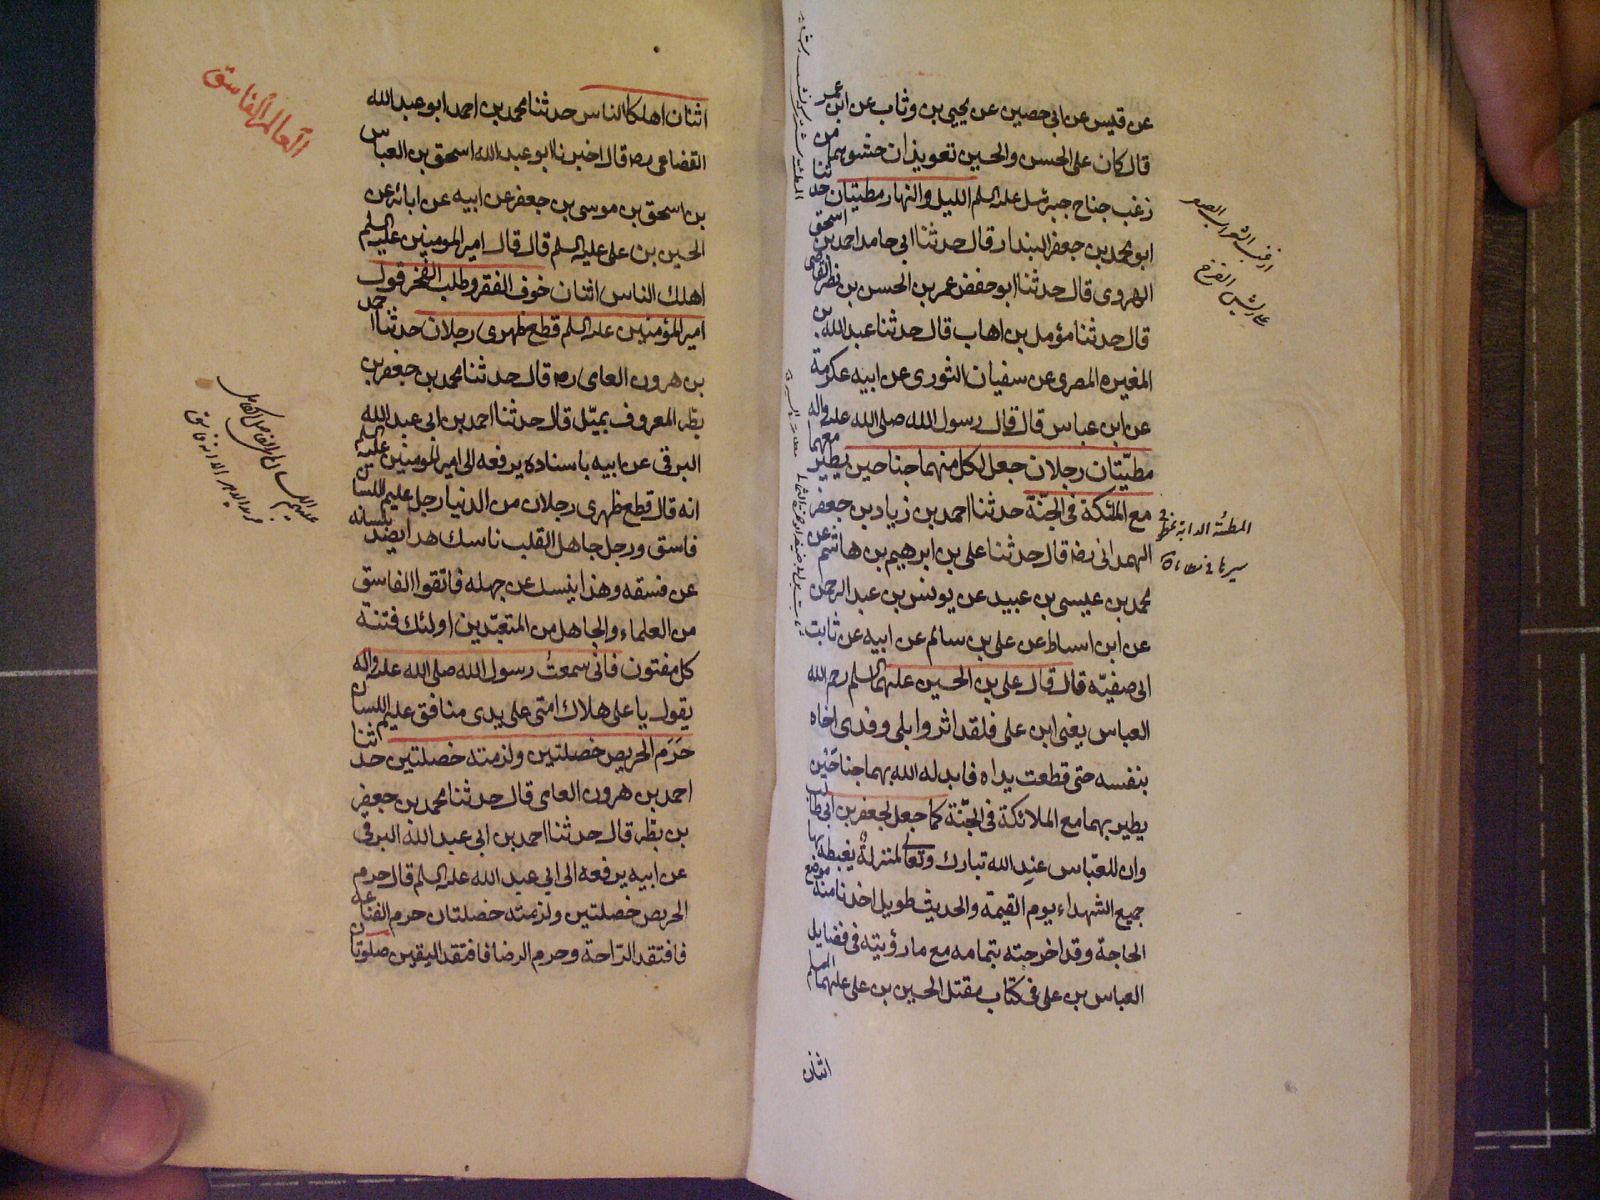 عن قيس عن ابى حصين عن يحيى بن وثاب عن ابن عمر
قال كان على الحسن والحسين تعويذان حشوهما من
زغب جناح جبرئيل عليه السلم الليل والنهار مطيتان حدثنا
ابو محمد بن جعفر البندار قال حدثنا ابى حامد احمد بن اسحق
الهروى قال حدثنا ابو حفص عمر بن الحسن بن نصر القاضى
قال حدثنا مؤمل بن اهاب قال حدثنا عبد الله بن
المغيره المصرى عن سفيان الثورى عن ابيه عن عكرمة
عن ابن عباس قال قال رسول الله صلى الله عليه واله
مطيّتان رجلان جعل لكل منهما جناحين يطير بهما
مع الملئكة فى الجنّة حدثنا احمد بن زياد بن جعفر
الهمدانى رضه قال حدثنا على بن ابرهيم بن هاشم عن
محمد بن عيسى بن عبيد عن يونس بن عبد الرحمن
عن ابن اسباط عن على بن سالم عن ابيه عن ثابت
ابى صفيّه قال قال على بن الحسين عليهما السلم رحم الله
العباس يعنى ابن على فلقد اثر وابلى وفدى اخاه
بنفسه حتى قطعت يداه فابدله الله بهما جناحين
يطير بهما مع الملائكة فى الجنّة كما جعل لجعفر بن ابى طالب
وان للعبّاس عند الله تبارك وتعالى لمنزلةً يغبطه بها
جميع الشهداء يوم القيمة والحديث طويل اخذنا منه موضع
الحاجة وقد اخرجته بتمامه مع ما رؤيته فى فضايل
العباس بن على فى كتاب مقتل الحسين بن على عليهما السلم
اثنان
المطيّة الدابة
اثنان اهلكا الناس حدثنا محمد بن احمد ابو عبد الله
القضاعى رضه قال اخبرنا ابو عبد الله اسحق بن العباس
بن اسحق بن موسى بن جعفر عن ابيه عن ابائه عن
الحسين بن على عليه السلم قال قال امير المومنين عليه السلم
اهلك الناس اثنان خوف الفقر وطلب الفخر قول
امير المؤمنين عليه السلم قطع ظهرى رجلان حدثنا احمد
بن هرون العامى رضه قال حدثنا محمد بن جعفر بن
بطّه المعروف بميّل قال حدثنا احمد بن ابى عبد الله
البرقى عن ابيه باسناده يرفعه الى امير المومنين عليه السلم
انه قال قطع ظهرى رجلان من الدنيا رجل عليم اللسان
فاسق ورجل جاهل القلب ناسك هذا يصد بلسانه
عن فسقه وهذا بنسك عن جهله فاتقوا الفاسق
من العلماء والجاهل من المتعبّدين اولئك فتنة
كل مفتون فانى سمعتُ رسول الله صلى الله عليه واله
يقول يا على هلاك امتى على يدى منافق عليم اللسان
حَرَم الحريص خصلتين ولزمته خصلتين حدثنا
احمد بن هرون العامى قال حدثنا محمد بن جعفر
بن بطه قال حدثنا احمد بن ابى عبد الله البرقى
عن ابيه يرفعه الى ابى عبد الله عليه السلم قال حرم
الحريص خصلتين ولزمته خصلتان حرم القناعه
فافتقد الرّاحة وحرم الرضا فافتقد اليقين صلوتان
العالم الفاسق